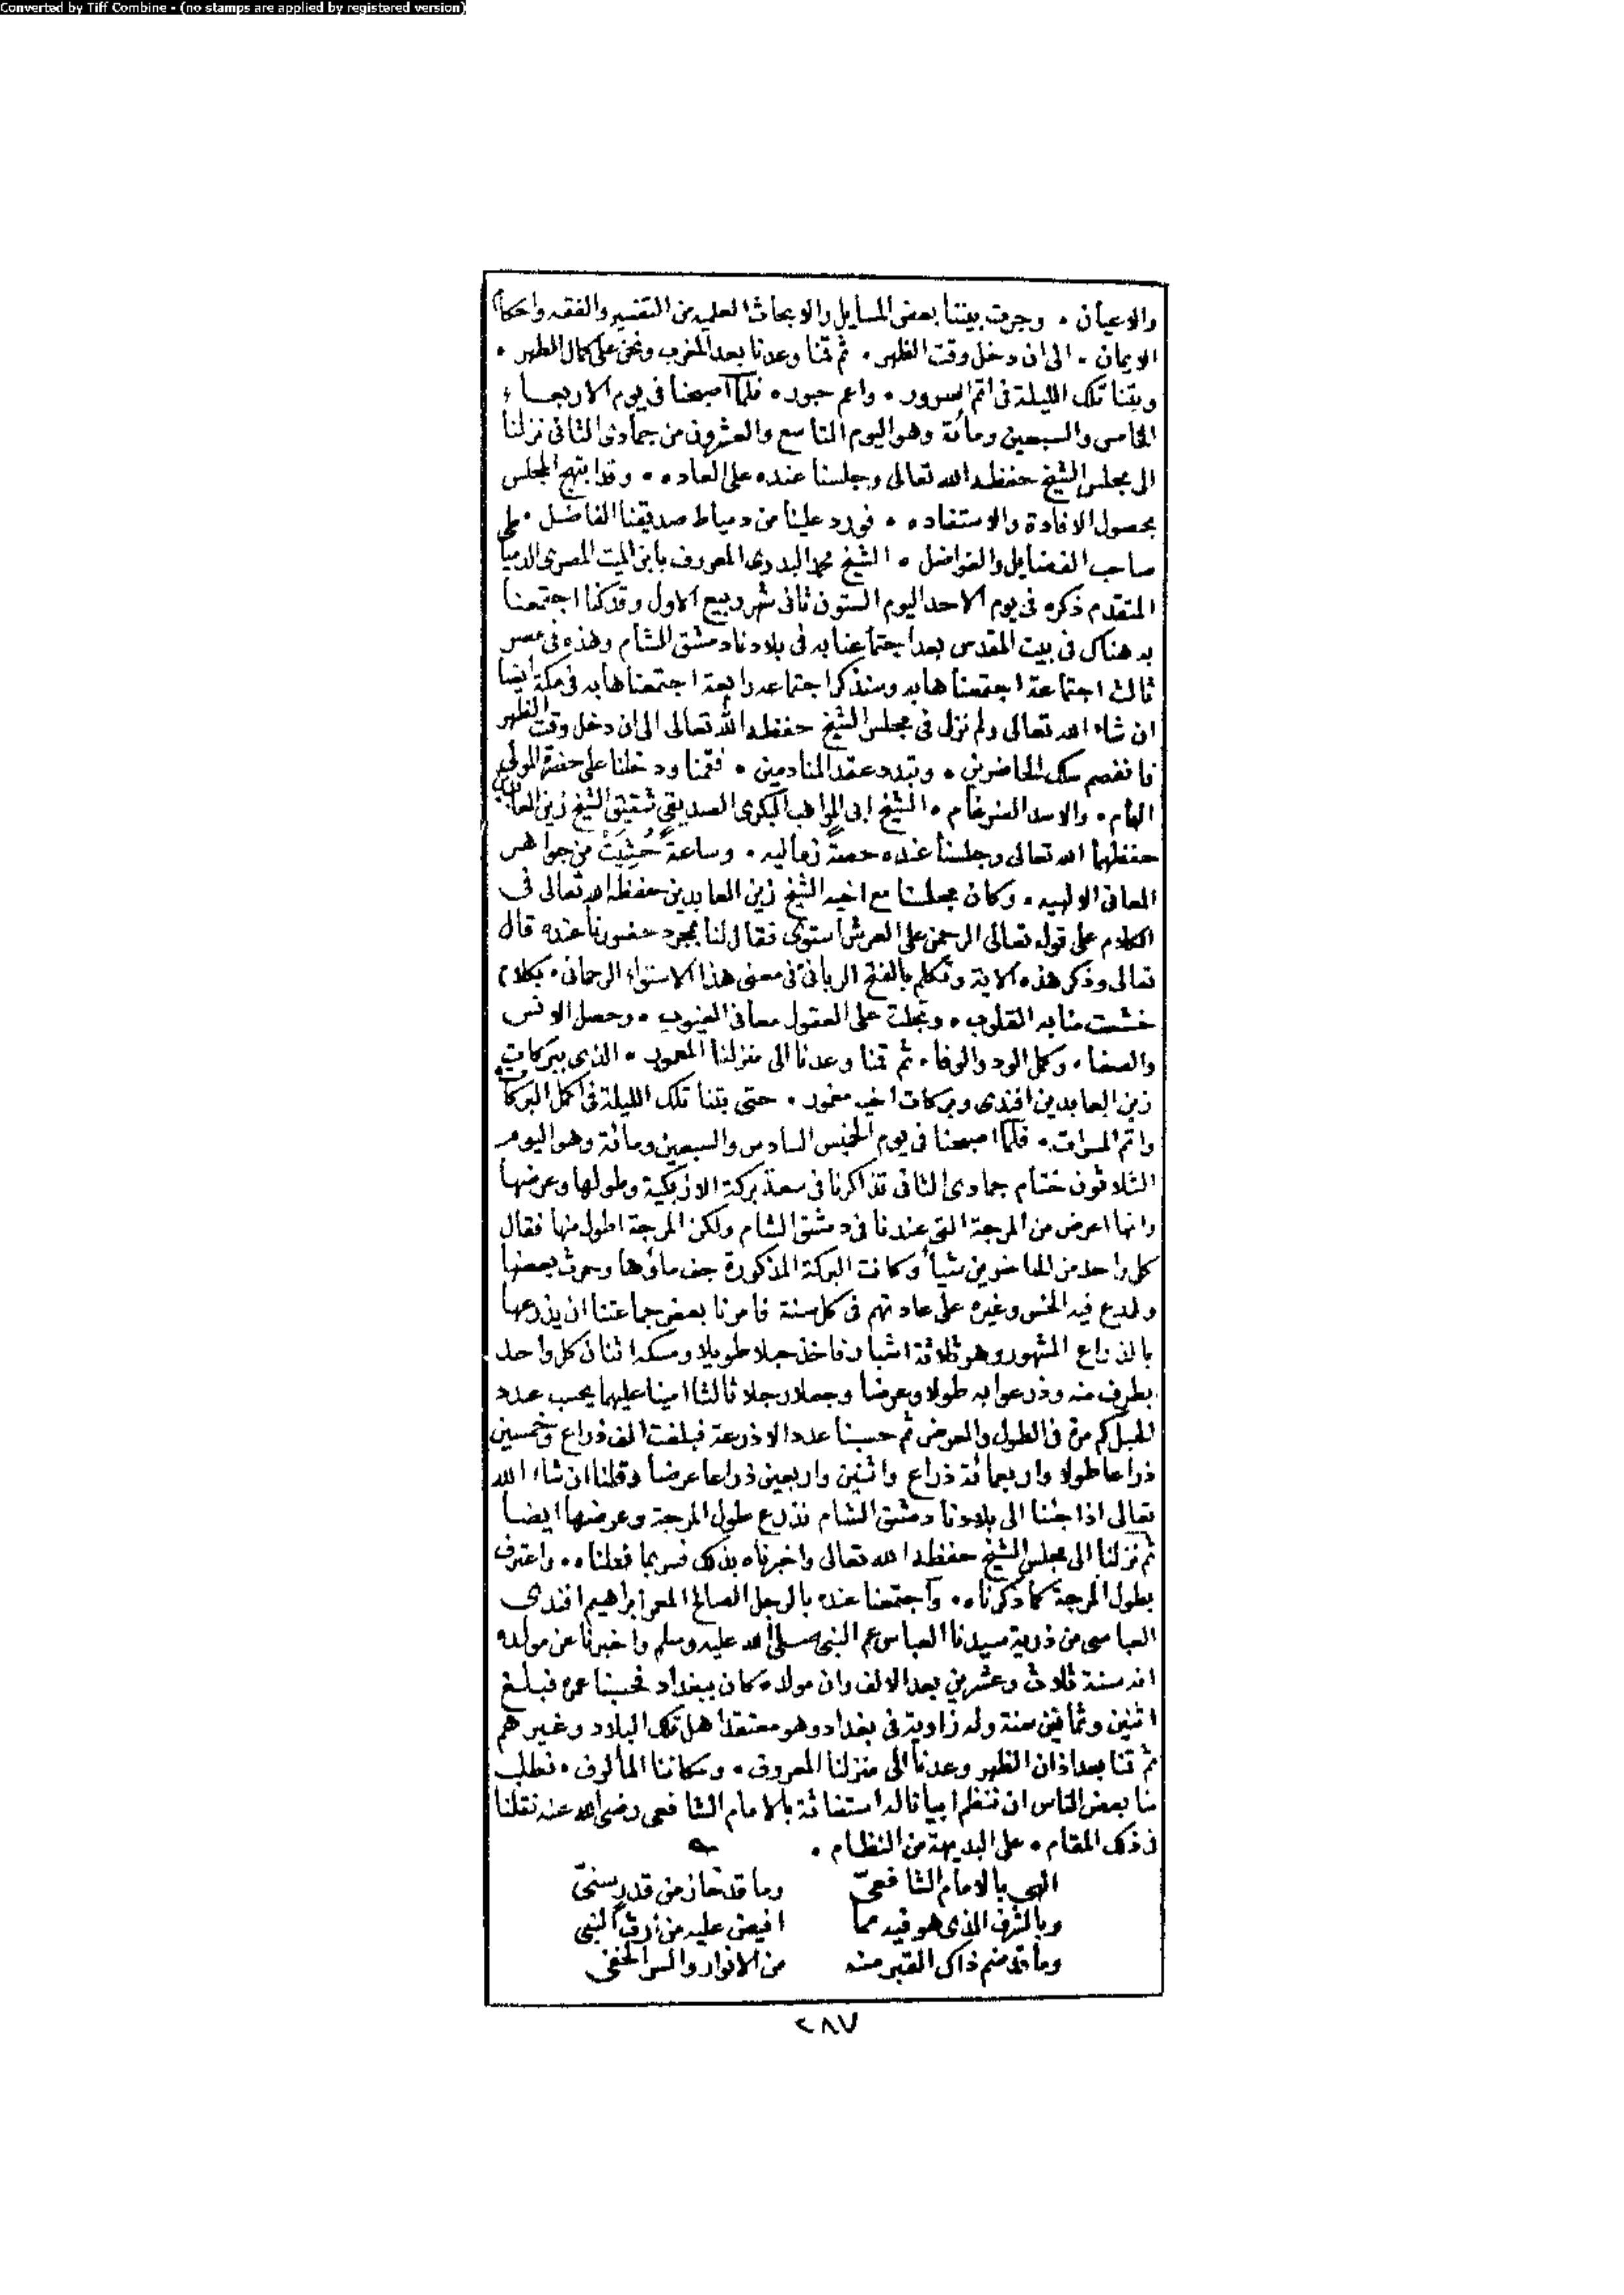 Converted by Tiff Combine - (no stamps are applied by registered version)
والاعيان . وجرت بيننا بعض المسايل والابحاث العلميه من التفسير والفقه واحكام
الايمان . الى ان دخل وقت الظهر . ثم قمنا وعدنا بعد المغرب ونحن على كمال الطهر .
وبتنا تلك الليلة فى اتم السرور . واعم حبور . فلما اصبحنا فى يوم الاربعاء
الخامس والسبعين ومائة وهو اليوم التاسع والعشرون من جمادى الثانى نزلنا
الى مجلس الشيخ حفظه الله تعالى وجلسنا عنده على العاده . وقد ابتهج المجلس
بحصول الافادة والاستفاده . فورد علينا من دمياط صديقنا الفاضل
صاحب الفضايل والفواضل . الشيخ محمد البديرى المعروف بابن الميت المصرى الدمياطى
المتقدم ذكره فى يوم الاحد اليوم الستون ثانى شهر ربيع الاول وقد كنا اجتمعنا
به هناك فى بيت المقدس بعد اجتماعنا به فى بلادنا دمشق الشام وهذه فى مصر
ثالث اجتماعة اجتمعناها به وسنذكر اجتماعه رابعة اجتمعناها به فى مكة ايضا
ان شاء الله تعالى ولم نزل فى مجلس الشيخ حفظه الله تعالى الى ان دخل وقت الظهر
فانفصم سلك الحاضرين . وتبدد عقد المنادمين . فقمنا ودخلنا على حضرة المولى
الهام . والاسد الضرغام . الشيخ ابى المواهب البكرى الصديقي شقيق الشيخ زين العابدين
حفظهما الله تعالى وجلسنا عنده حصة زماليه . وساعةً حُشِيَتْ من جواهر
المعانى الالهيه . وكان مجلسنا مع اخيه الشيخ زين العابدين حفظه الله تعالى فى
الكلام على قوله تعالى الرحمن على العرش استوى فقال لنا بمجرد حضورنا عنده قال
تعالى وذكر هذه الاية وتكلم بالفتح الربانى فى معنى هذا الاستواء الرحمانى . بكلام
خشعت منا به القلوب . وتجلت على العقول معانى الغيوب . وحصل الانس
والصفا . وكمل الود والوفا . ثم قمنا وعدنا الى منزلنا المعمور . الذى ببركات
زين العابدين افندى وبركات اخيه مغمور . حتى بتنا تلك الليلة فى اكمل البركات
واتم المسرات . فلما اصبحنا فى يوم الخميس السادس والسبعين ومائة وهو اليوم
الثلاثون ختام جمادى الثانى تذاكرنا فى سعة بركة الازبكية وطولها وعرضها
وانها اعرض من المرجة التى عندنا فى دمشق الشام ولكن المرجة اطول منها فقال
كل واحد من الحاضرين شيأ وكانت البركة المذكورة جف ماؤها وحرث بعضها
وزرع فيه الخس وغيره على عادتهم فى كل سنة فامرنا بعض جماعتنا ان يذرعها
بالذراع المشهور وهو ثلاثة اشبار فاخذ حبلا طويلا ومسكه اثنان كل واحد
بطرف منه وذرعوا به طولا وعرضا وجعلا رجلا ثالثا امينا عليهما يحسب عدد
الحبل كم مرة فى الطول والعرض ثم حسبنا عدد الاذرعة فبلغت الف ذراع وخمسين
ذراعا طولا واربعمائة ذراع واثنين واربعين ذراعا عرضا وقلنا ان شاء الله
تعالى اذا جئنا الى بلادنا دمشق الشام نذرع طول المرجة وعرضها ايضا
ثم نزلنا الى مجلس الشيخ حفظه الله تعالى واخبرناه بذلك فسر بما فعلناه . واعترف
بطول المرجة كما ذكرناه . واجتمعنا عنده بالرجل الصالح المعمر ابراهيم افندى
العباسى من ذرية سيدنا العباس عم النبى صلى الله عليه وسلم واخبرنا عن مولده
انه سنة ثلاث وعشرين بعد الالف وان مولده كان ببغداد فحسبنا عمره فبلغ
اثنين وثمانين سنة وله زاوية فى بغداد وهو معتقد اهل تلك البلاد وغيرهم
ثم قمنا بعد اذان الظهر وعدنا الى منزلنا المعروف . ومكاننا المألوف . فطلب
منا بعض الناس ان ننظم ابياتا له استغاثة بالامام الشافعى رضى الله عنه فقلنا
فى ذلك المقام . على البديهة من النظام .
الهى بالامام الشافعىّ وما قد حاز من قدر سنىّ
وبالشرف الذى هو فيه مما افيض عليه من ارث النبى
وما قد ضم ذاك القبر منه من الانوار والسر الخفى
٢٨٧